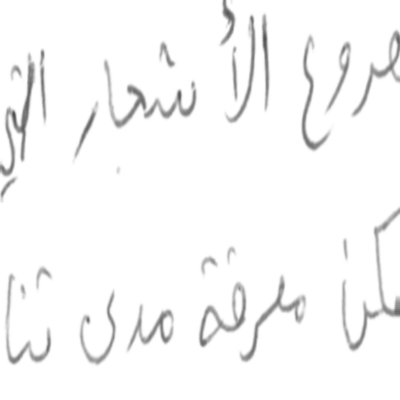 صروع الأشعار التي
يمكن معرفة مدى تنا